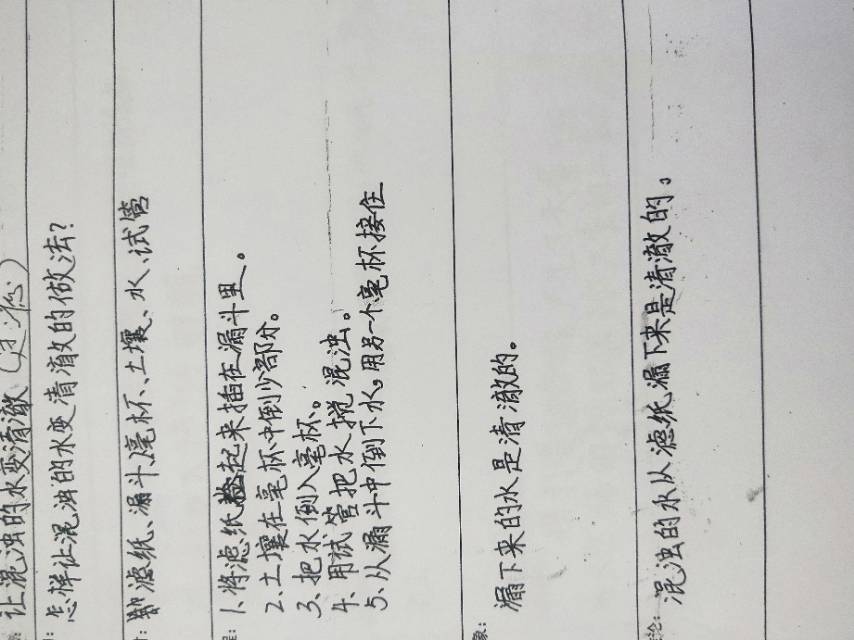 让混浊的水变清澈(过滤)
怎样让混浊的水变清澈的做法?
滤纸、漏斗、毫杯、土壤、水、试管
1.将滤纸卷起来插在漏斗里。
2.土壤在毫杯中倒少部分。
3.把水倒入毫杯。
4.用试管把水搅混浊。
5.从漏斗中倒下水。用另一个毫杯接住
漏下来的水是清澈的。
混浊的水从滤纸漏下来是清澈的。